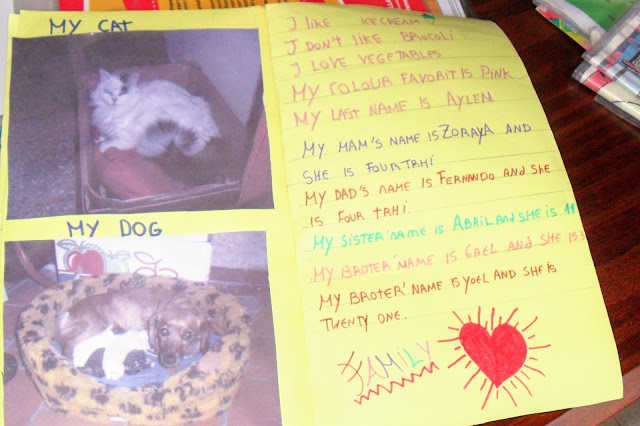 MY CAT
MY DOG
I LIKE ICECREAM
I DON'T LIKE BROCOLI
I LOVE VEGETABLES
MY COLOUR FAVORIT IS PINK
MY LAST NAME IS AYLEN
MY MAM'S NAME IS ZORAYA AND
SHE IS FOUR TRHI
MY DAD'S NAME IS FERNANDO AND SHE
IS FOUR TRHI.
MY SISTER' NAME IS ABRIL AND SHE IS 11
MY BROTER' NAME IS GAEL AND SHE IS 3
MY BROTER' NAME IS YOEL AND SHE IS
TWENTY ONE.
FAMILY